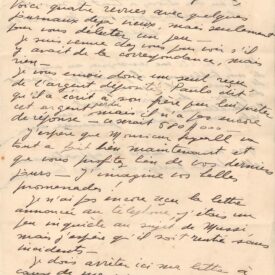 Voici quatre revues avec quelques
journaux déjà vieux, mais seulement
pour vous délecter un peu —
Je suis venue chez vous pour voir s'il
y avait de la correspondance, mais
rien —
Je vous envoie donc un seul reçu
de l'argent déposité. Paulo dit
qu'il a écrit à son père pour lui prêter
cet argent, mais il n'a pas encore
de réponse — ce serait
J'espère que Monsieur
tout à fait bien maintenant et
que vous profitez bien de vos derniers
jours — J'imagine vos belles
promenades!
Je n'ai pas encore reçu la lettre
annoncée au téléphone, j'étais un
peu inquiète au sujet de
mais j'espère qu'il soit rentré sans
incidents —
Je dois arrêter ici ma lettre à
cause de